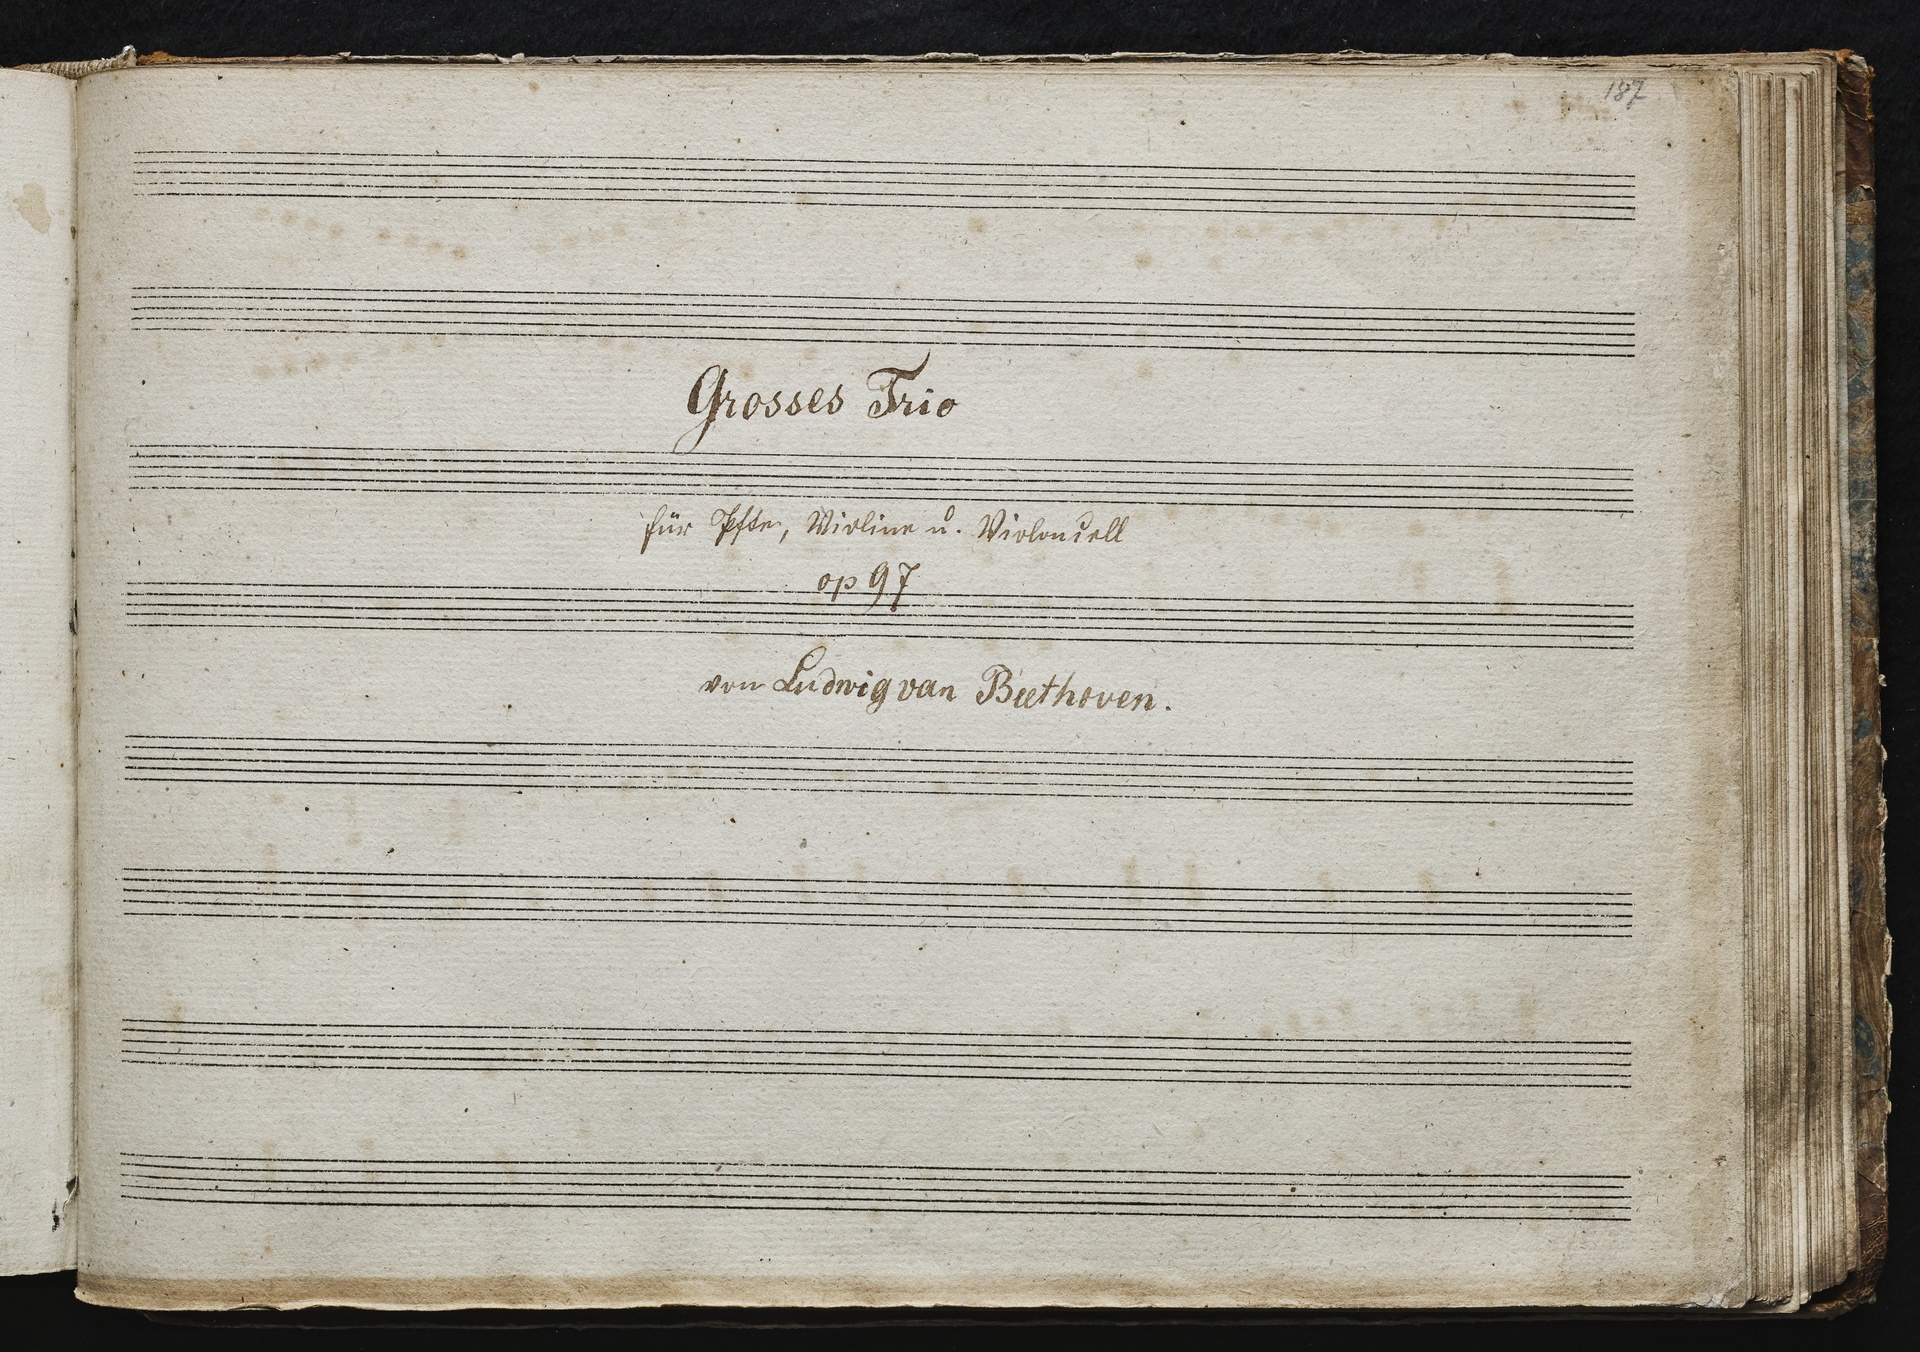 187
Grosses Trio
für Pfte, Violine u. Violoncell
op 97
von Ludwig van Beethoven.